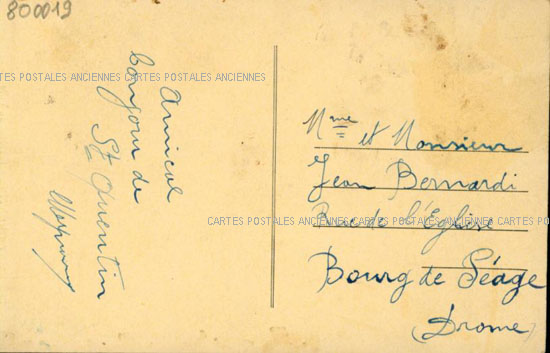 800019
Amical
bonjour de
St Quentin
CARTES POSTALES ANCIENNES CARTES POSTALES ANCIENNES
Mme et Monsieur
Jean Bernardi
Rue de l'Eglise
CARTES POSTALES ANCIENNES CARTES POSTALES ANCIENNES CARTES POS
Bourg de Péage
(Drome)